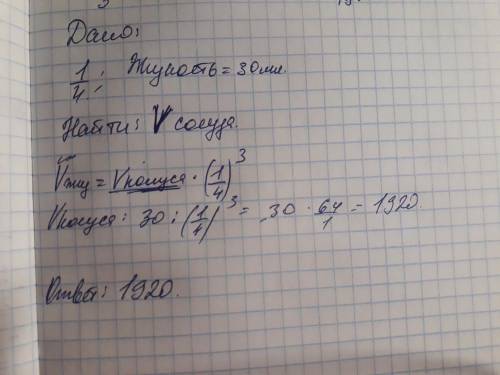 Дано:
1/4; Жидкость = 30 мл.
Найти: V сосуда.
Vжид = Vконуса · (1/4)³
Vконуса: 30 : (1/4)³ = 30 · 64/1 = 1920.
Ответ: 1920.